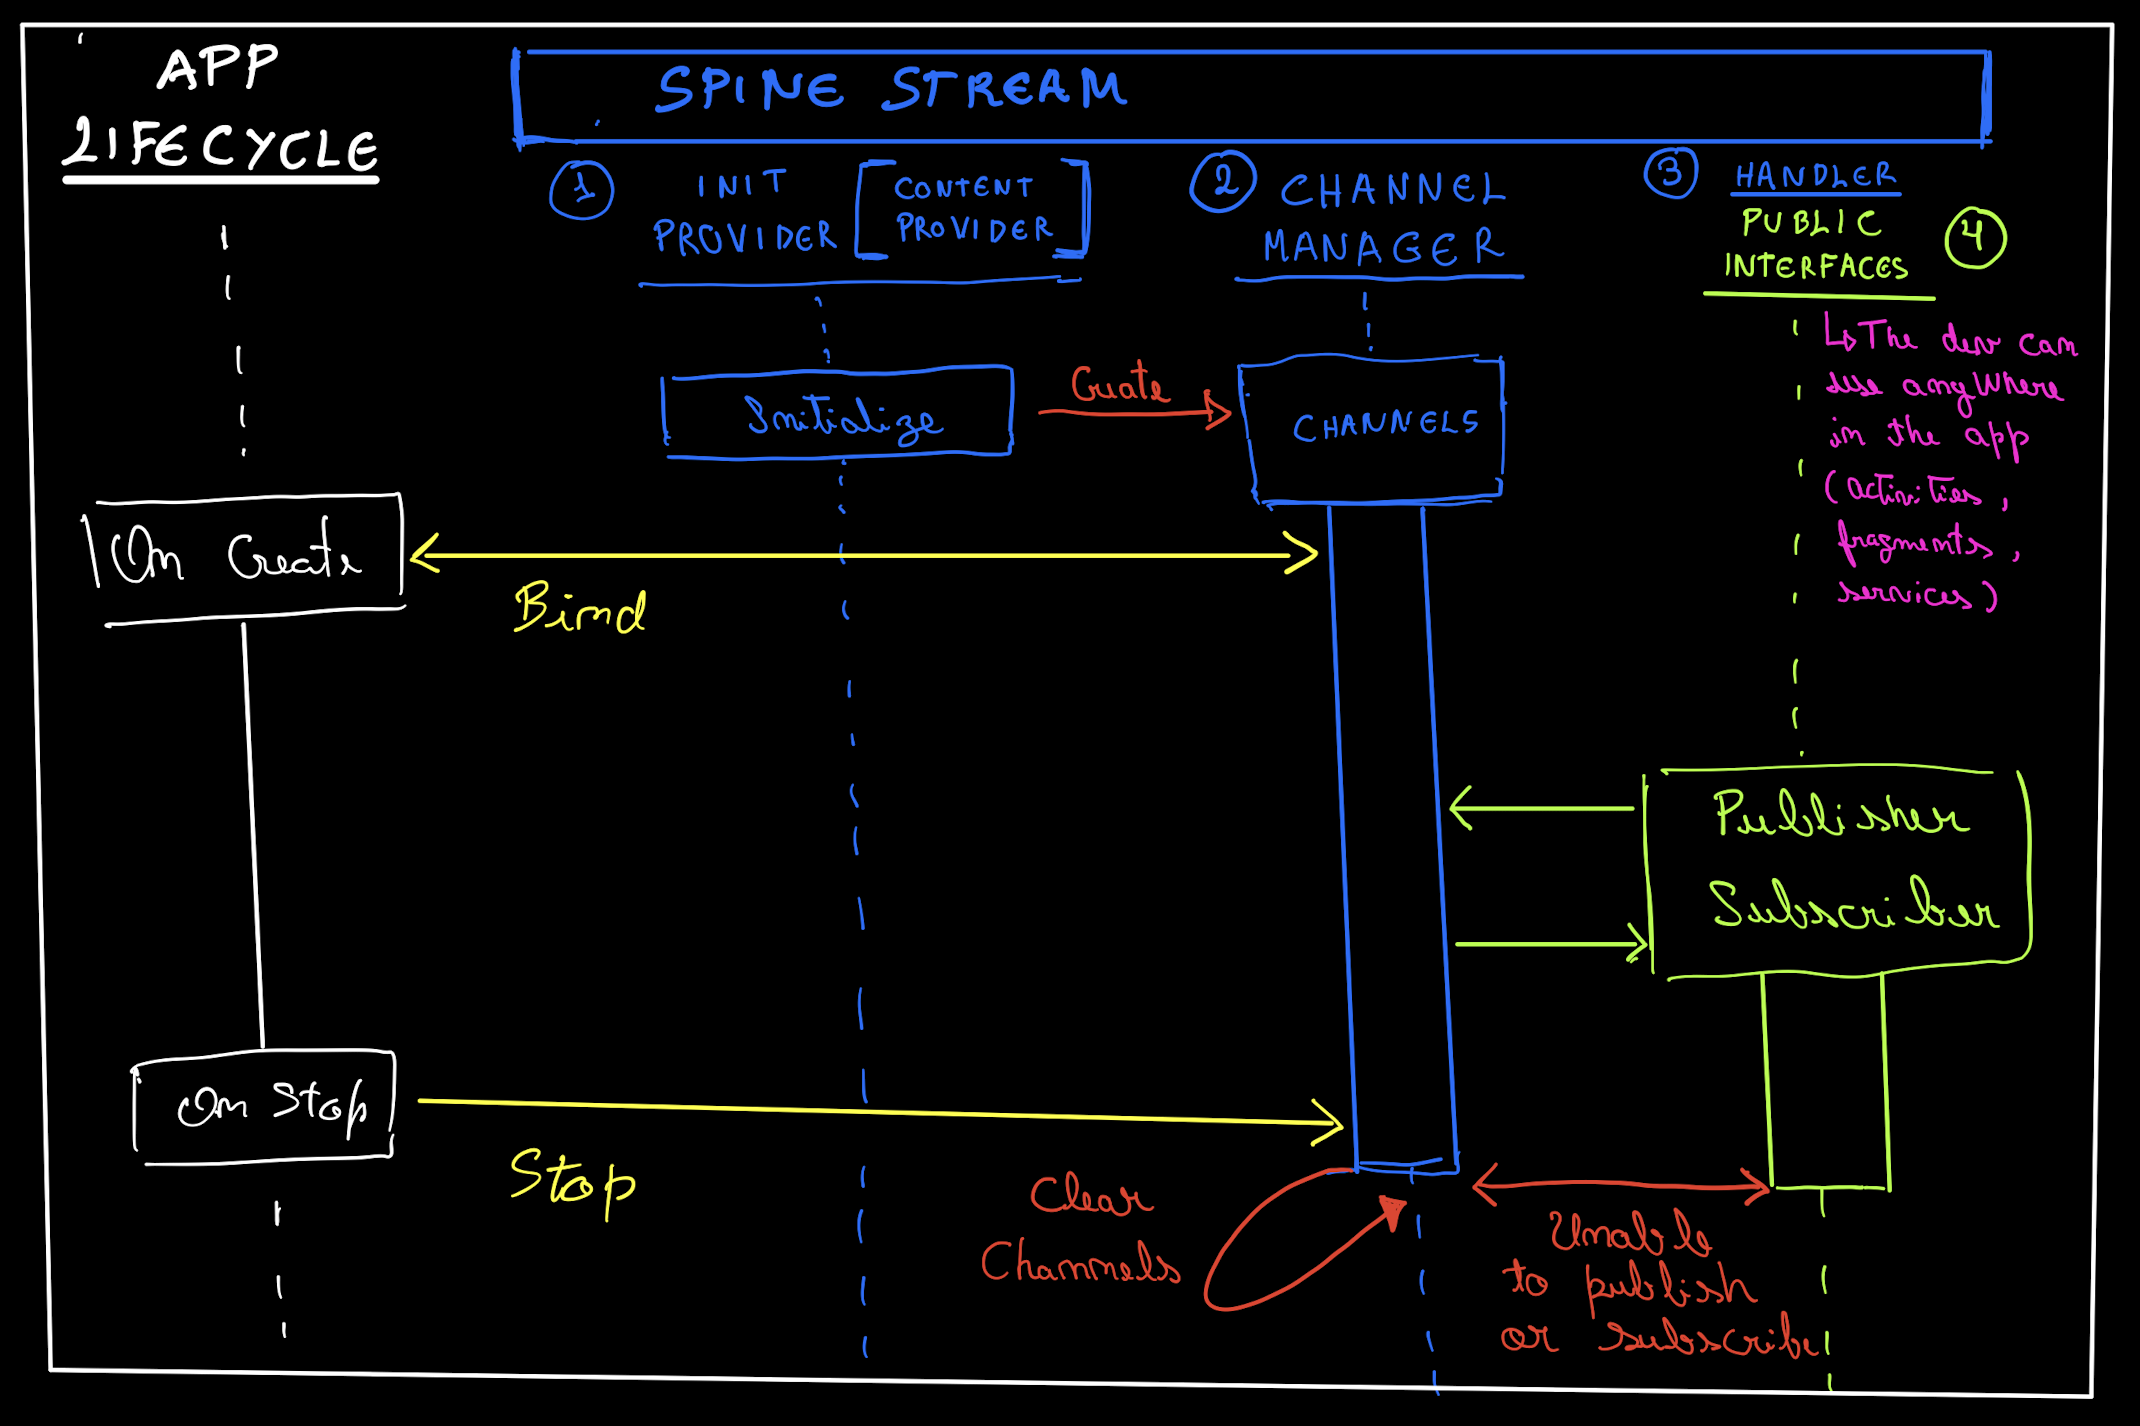 APP
LIFECYCLE
SPINE STREAM
1
INIT
PROVIDER
CONTENT
PROVIDER
2
CHANNEL
MANAGER
3
HANDLER
PUBLIC
INTERFACES
4
↳ The dev can
use anyWhere
in the app
(activities,
fragments,
services)
Initialize
Create
CHANNELS
On Create
Bind
Publisher
Subscriber
On Stop
Stop
Clear
Channels
Unable
to publish
or subscribe